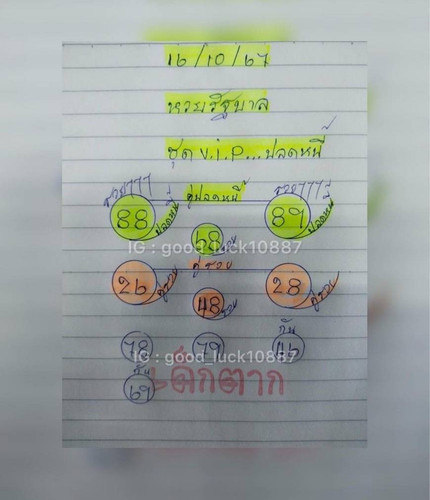 16/10/67
หวยรัฐบาล
ชุด V.I.P...ปลดหนี้
รวย777 คู่ปลดหนี้ รวย777
88 ปลดหนี้ 68 รวย 89 ปลดหนี้
IG : good_luck10887
คู่รวย
26 คู่รวย 48 รวย 28 คู่รวย
78 79 กัน 46
IG : good_luck10887
กัน
69